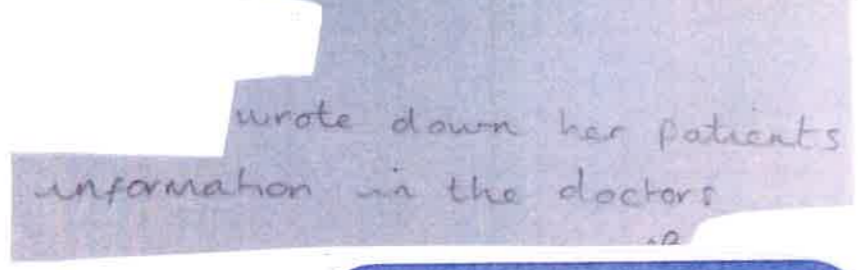 wrote down her patients
information in the doctors